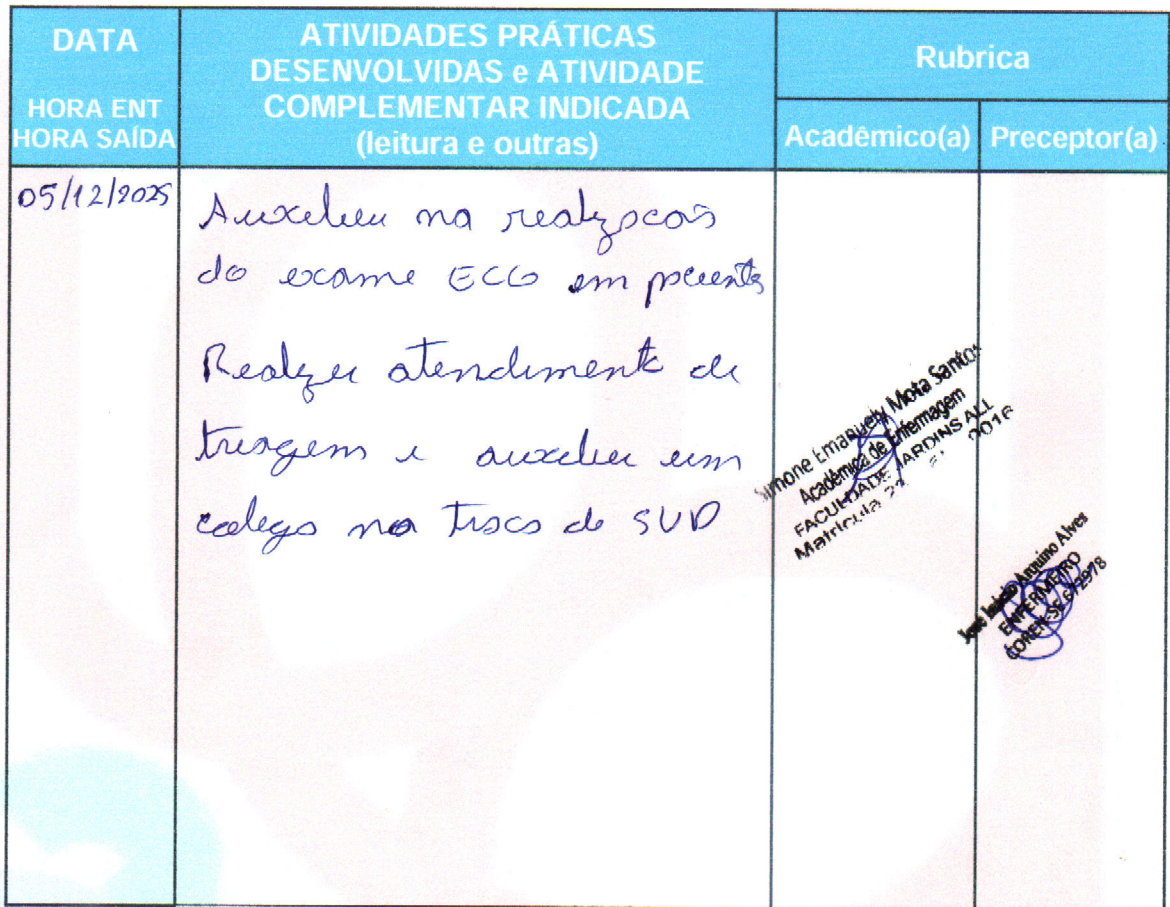 DATA
HORA ENT
HORA SAÍDA
ATIVIDADES PRÁTICAS
DESENVOLVIDAS e ATIVIDADE
COMPLEMENTAR INDICADA
(leitura e outras)
Rubrica
Acadêmico(a)
Preceptor(a)
05/12/2025
Auxiliei na realização
do exame ECG em pacientes
Realizei atendimento de
triagem e auxiliei um
colega na troca de SVD
Simone Emanuely Mota Santos
Acadêmica de Enfermagem
FACULDADE JARDINS
Matrícula
Arquino Alves
ENFERMEIRO
COREN-SE 672978